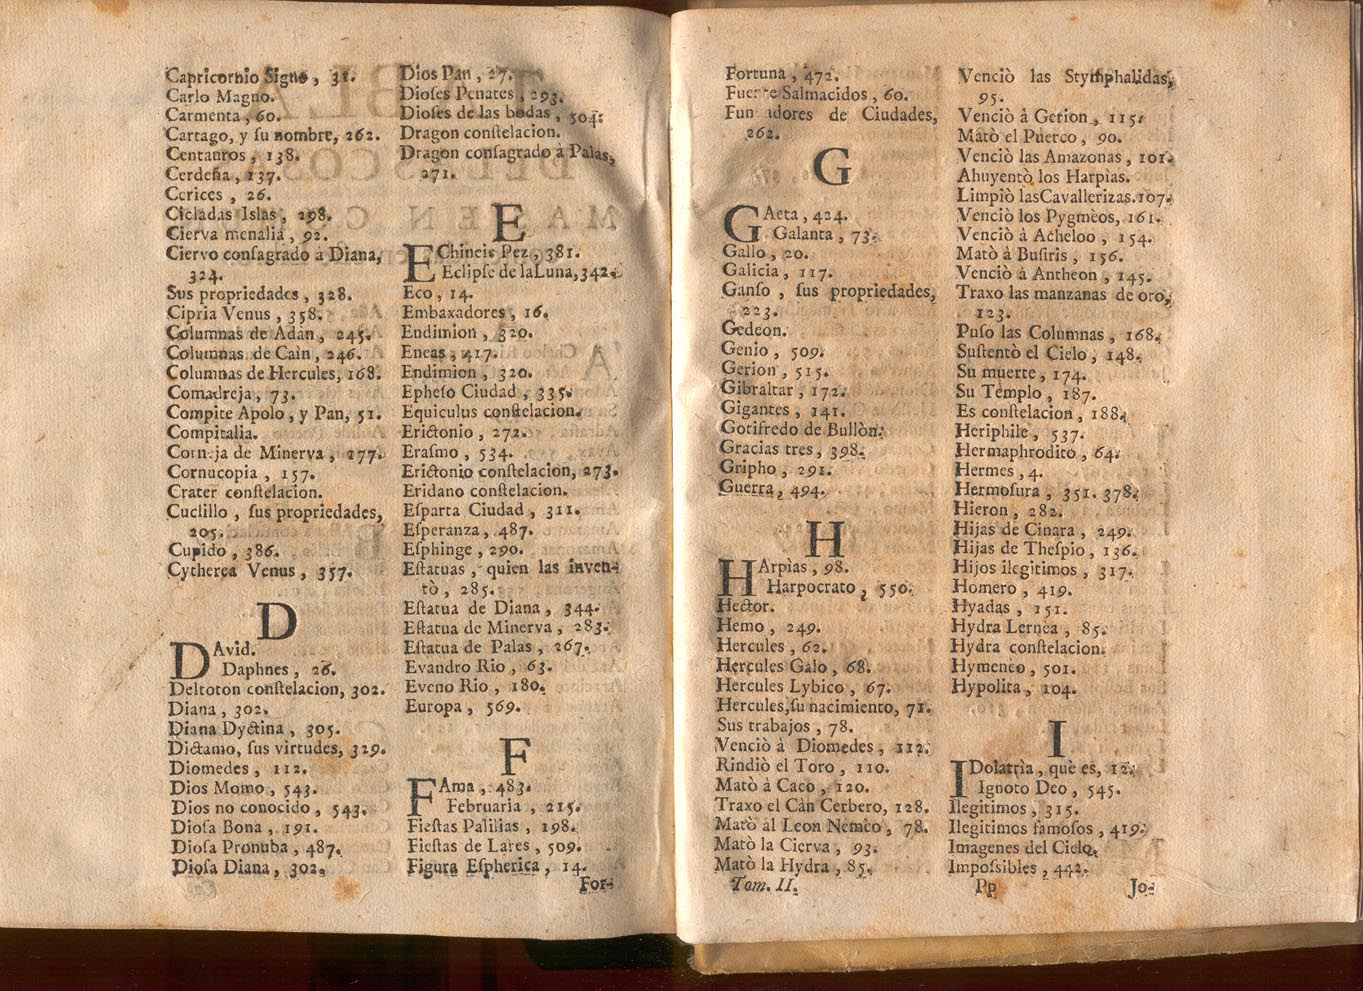 Capricornio Signo, 31.
Carlo Magno.
Carmenta, 60.
Cartago, y su nombre, 262.
Centauros, 138.
Cerdeña, 137.
Cerices, 26.
Cicladas Islas, 298.
Cierva menalia, 92.
Ciervo consagrado à Diana,
324.
Sus propriedades, 328.
Cipria Venus, 358.
Columnas de Adàn, 245.
Columnas de Cain, 246.
Columnas de Hercules, 168.
Comadreja, 73.
Compite Apolo, y Pan, 51.
Compitalia.
Corneja de Minerva, 177.
Cornucopia, 157.
Crater constelacion.
Cuclillo, sus propriedades,
205.
Cupido, 386.
Cytherea Venus, 357.
D
DAvid.
Daphnes, 26.
Deltoton constelacion, 302.
Diana, 302.
Diana Dyctina, 305.
Dictamo, sus virtudes, 329.
Diomedes, 112.
Dios Momo, 543.
Dios no conocido, 543.
Diosa Bona, 191.
Diosa Pronuba, 487.
Diosa Diana, 302.
Dios Pan, 27.
Dioses Penates, 293.
Dioses de las bodas, 504.
Dragon constelacion.
Dragon consagrado à Palas,
271.
E
EChineis Pez, 381.
Eclipse de la Luna, 342.
Eco, 14.
Embaxadores, 16.
Endimion, 320.
Eneas, 417.
Endimion, 320.
Epheso Ciudad, 335.
Equiculus constelacion.
Erictonio, 272.
Erasmo, 534.
Erictonio constelacion, 273.
Eridano constelacion.
Esparta Ciudad, 311.
Esperanza, 487.
Esphinge, 290.
Estatuas, quien las inven-
tò, 285.
Estatua de Diana, 344.
Estatua de Minerva, 283.
Estatua de Palas, 267.
Evandro Rio, 63.
Eveno Rio, 180.
Europa, 569.
F
FAma, 483.
Februaria, 215.
Fiestas Palilias, 198.
Fiestas de Lares, 509.
Figura Espherica, 14.
For-
Fortuna, 472.
Fuente Salmacidos, 60.
Fundadores de Ciudades,
262.
G
GAeta, 424.
Galanta, 73.
Gallo, 20.
Galicia, 117.
Ganso, sus propriedades,
223.
Gedeon.
Genio, 509.
Gerion, 515.
Gibraltar, 172.
Gigantes, 141.
Gotifredo de Bullòn.
Gracias tres, 398.
Gripho, 291.
Guerra, 494.
H
HArpìas, 98.
Harpocrato, 550.
Hector.
Hemo, 249.
Hercules, 62.
Hercules Galo, 68.
Hercules Lybico, 67.
Hercules, su nacimiento, 71.
Sus trabajos, 78.
Venciò à Diomedes, 112.
Rindiò el Toro, 110.
Matò à Caco, 120.
Traxo el Càn Cerbero, 128.
Matò al Leon Nemèo, 78.
Matò la Cierva, 93.
Matò la Hydra, 85.
Tom. II.
Venciò las Stymphalidas,
95.
Venciò à Gerion, 115.
Matò el Puerco, 90.
Venciò las Amazonas, 101.
Ahuyentò los Harpìas.
Limpiò las Cavallerizas. 107.
Venciò los Pygmèos, 161.
Venciò à Acheloo, 154.
Matò à Busiris, 156.
Venciò à Antheon, 145.
Traxo las manzanas de oro,
123.
Puso las Columnas, 168.
Sustentò el Cielo, 148.
Su muerte, 174.
Su Templo, 187.
Es constelacion, 188.
Heriphile, 537.
Hermaphrodito, 64.
Hermes, 4.
Hermosura, 351. 378.
Hieron, 282.
Hijas de Cinara, 249.
Hijas de Thespio, 136.
Hijos ilegitimos, 317.
Homero, 419.
Hyadas, 151.
Hydra Lernèa, 85.
Hydra constelacion.
Hymenèo, 501.
Hypolita, 104.
I
IDolatrìa, què es, 12.
Ignoto Deo, 545.
Ilegitimos, 315.
Ilegitimos famosos, 419.
Imagenes del Cielo.
Impossibles, 442.
Pp
Jo-